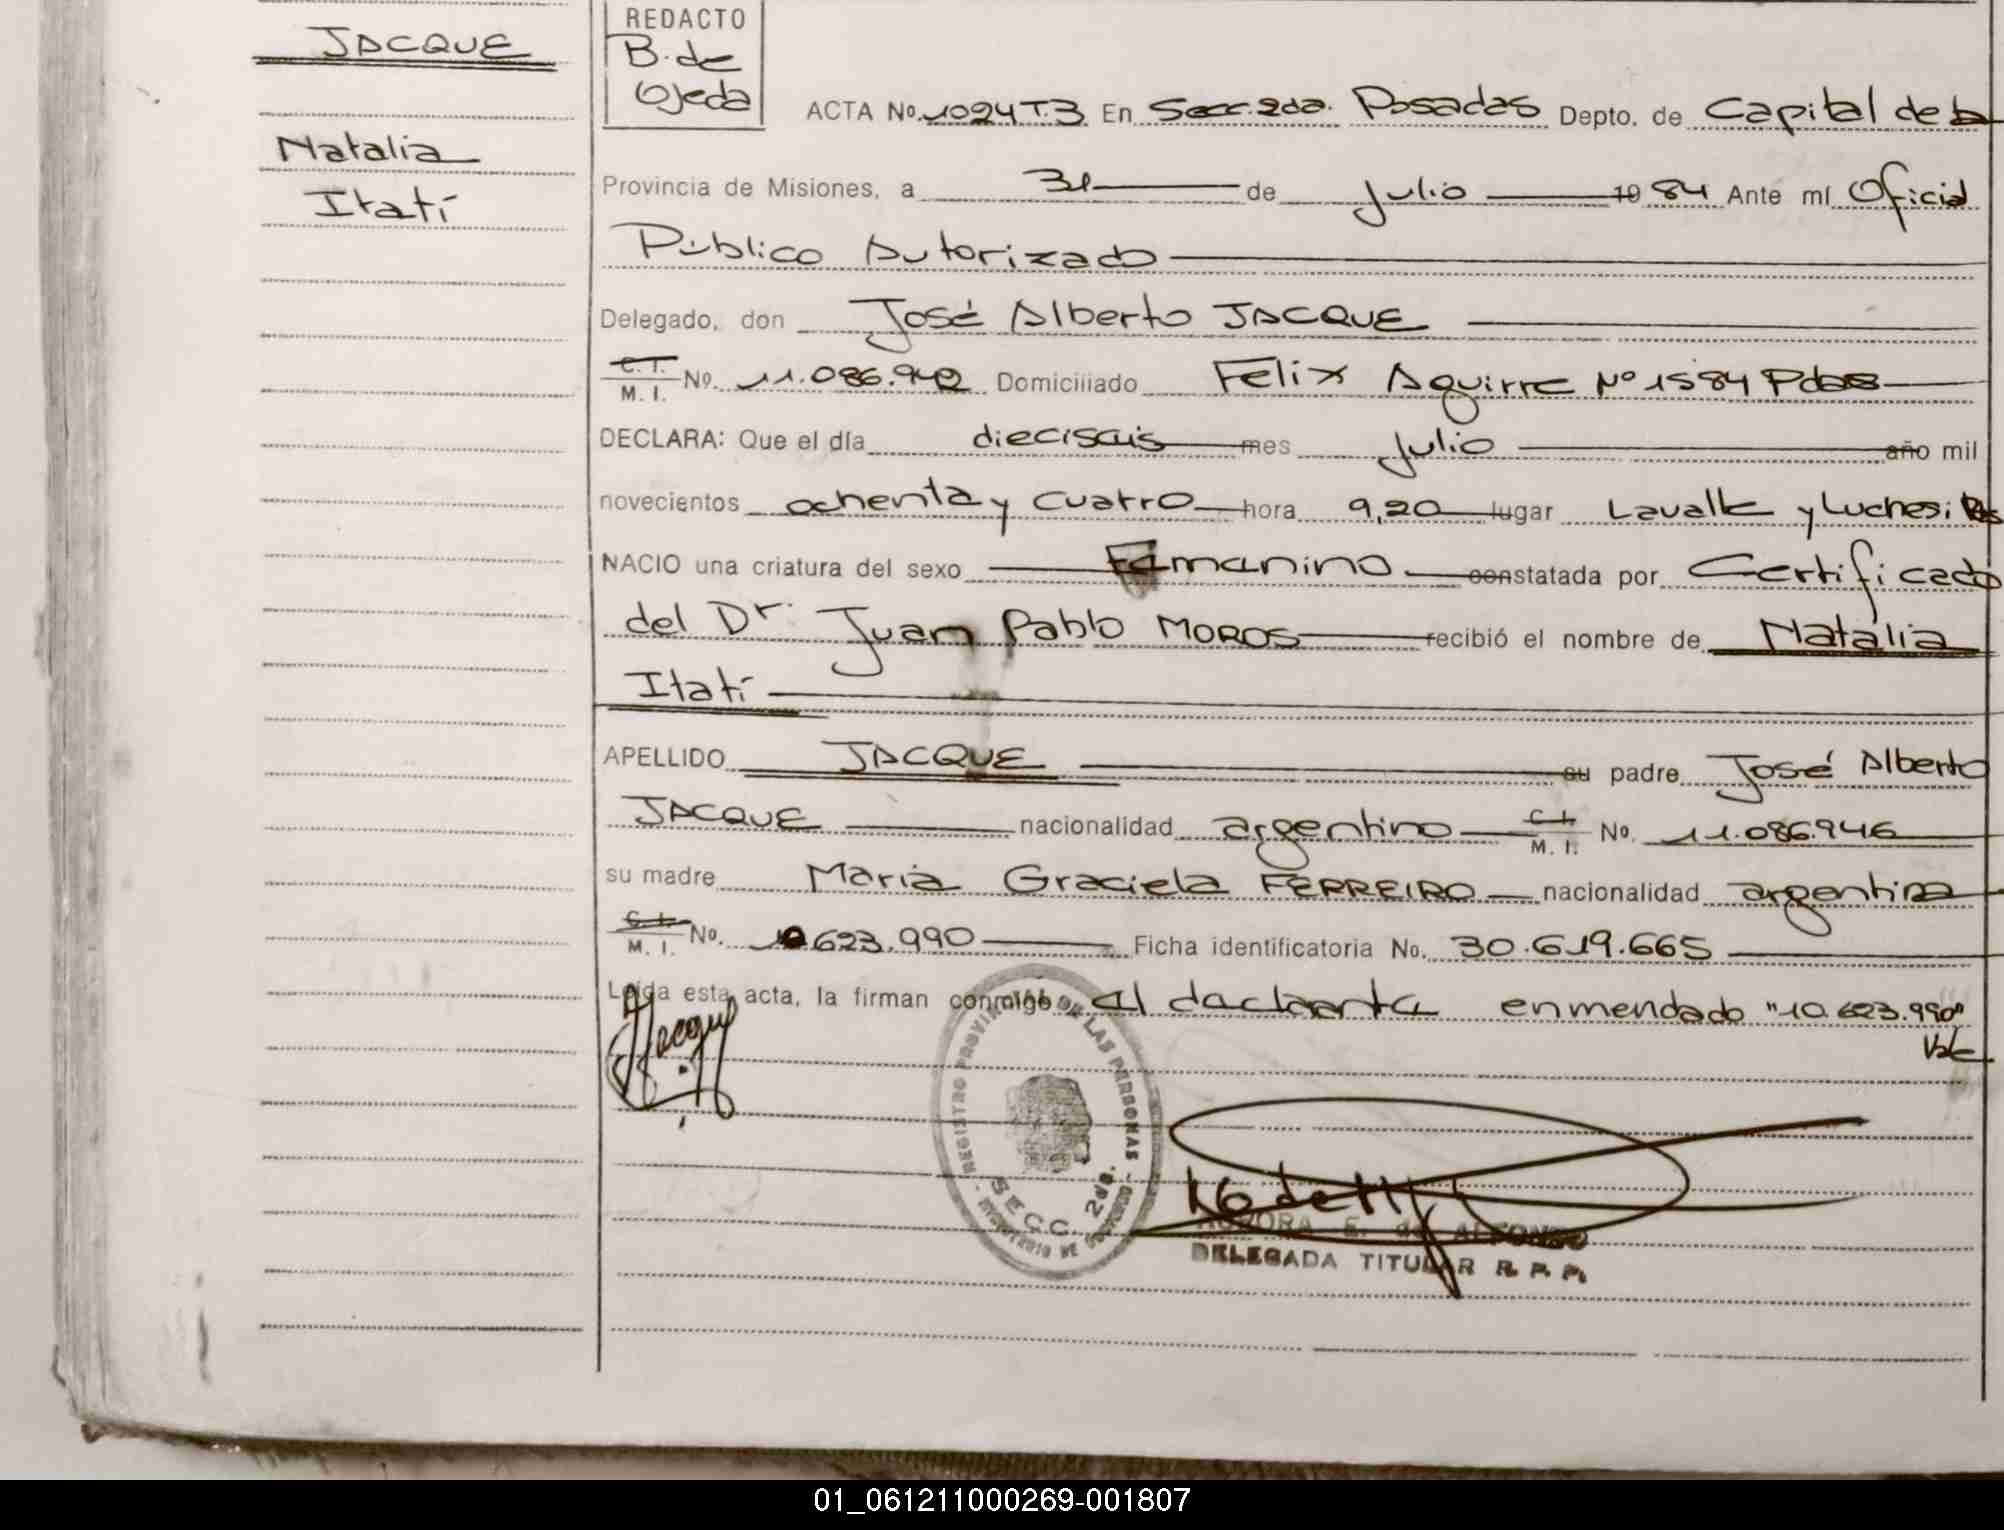 JACQUE
Natalia
Itatí
REDACTO
B. de
Ojeda
ACTA No. 1024 T.3 En Secc. 2da. Posadas Depto. de Capital de la
Provincia de Misiones, a 31 de julio 1984 Ante mí Oficial
Público Autorizado
Delegado, don José Alberto JACQUE
C. I.
M. I. No. 11.086.942 Domiciliado Felix Aguirre Nº 1584 Pdas
DECLARA: Que el día dieciseis mes julio año mil
novecientos ochenta y cuatro hora 9,20 lugar Lavalle y Luchesi Pdas
NACIO una criatura del sexo Femenino constatada por Certificado
del Dr. Juan Pablo MOROS recibió el nombre de Natalia
Itatí
APELLIDO JACQUE su padre José Alberto
JACQUE nacionalidad argentino C. I. M. I. No. 11.086.946
su madre María Graciela FERREIRO nacionalidad argentina
C. I.
M. I. No. 10.623.990 Ficha identificatoria No. 30.619.665
Leída esta acta, la firman conmigo el declarante enmendado "10.623.990"
Vale
REGISTRO PROVINCIAL DE LAS PERSONAS
SECC. 2da.
AURORA E. de ALFONSO
DELEGADA TITULAR R. P. P.
01_061211000269-001807